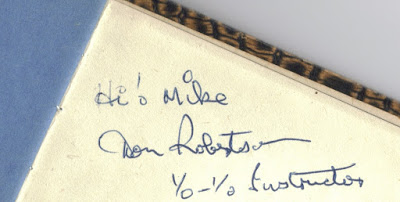 Hi's Mike
Don Robertson
Yo-Yo Instructor